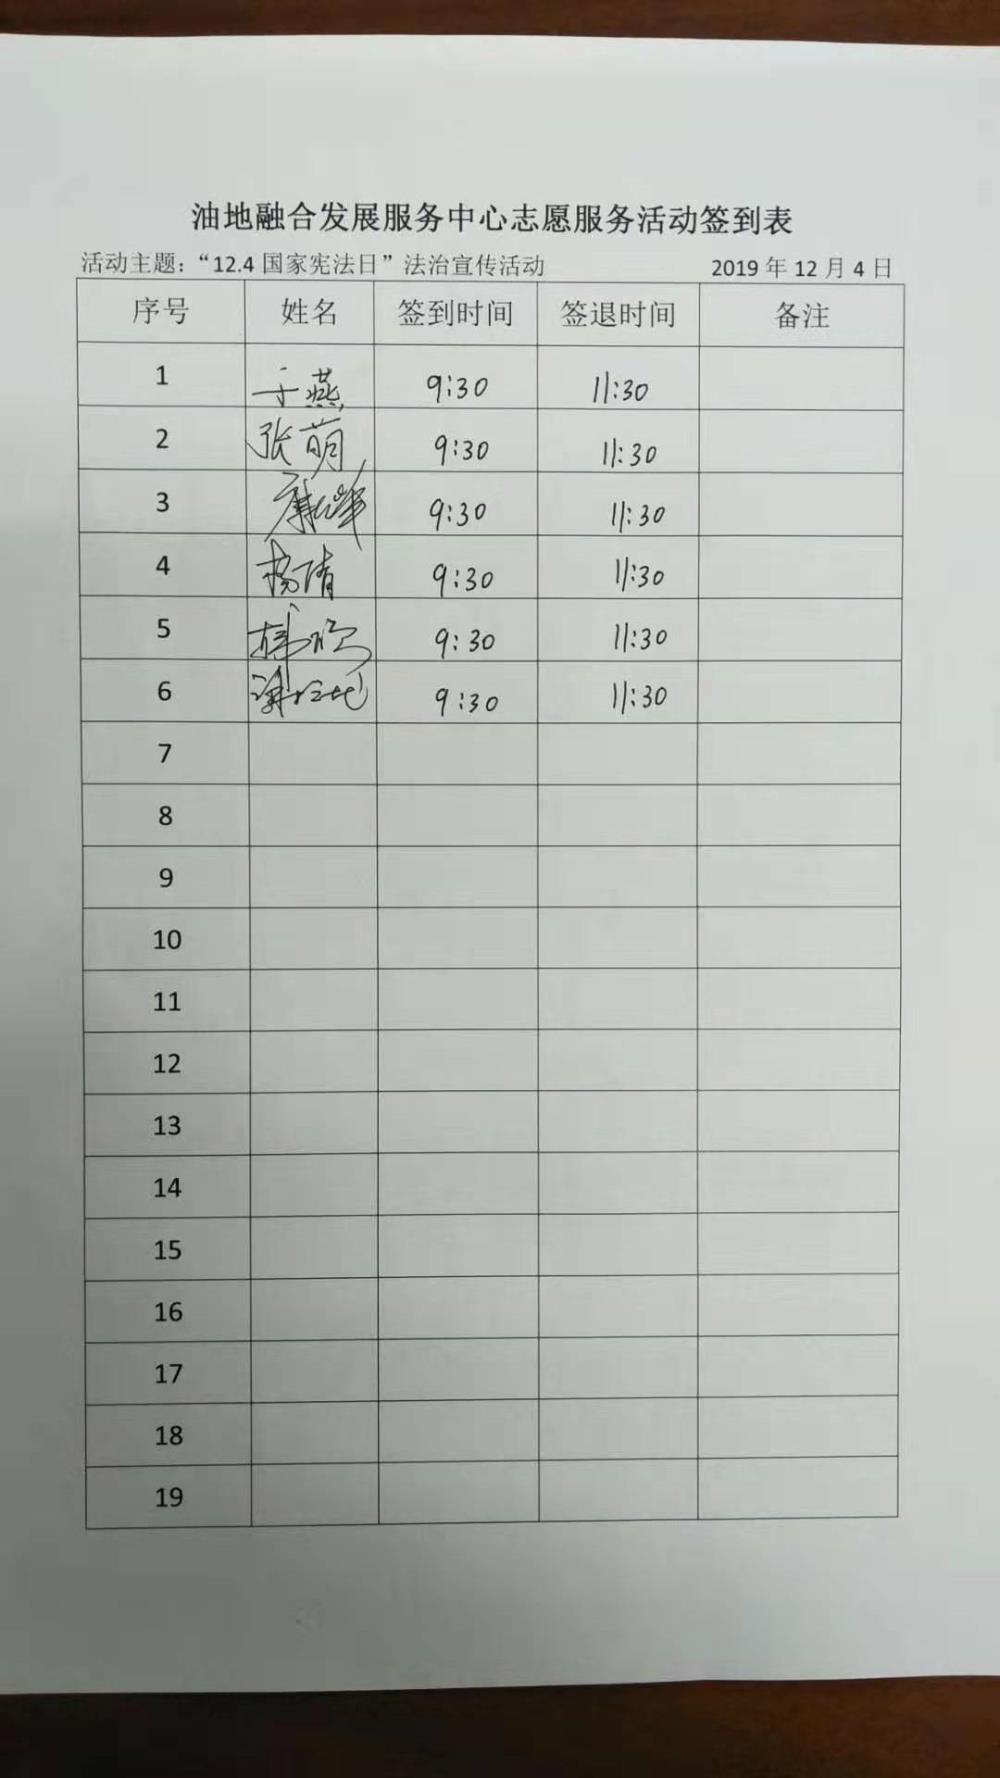 油地融合发展服务中心志愿服务活动签到表
活动主题：“12.4 国家宪法日”法治宣传活动 2019 年 12 月 4 日
序号 姓名 签到时间 签退时间 备注
1 于燕 9:30 11:30
2 张萌 9:30 11:30
3 9:30 11:30
4 杨倩 9:30 11:30
5 9:30 11:30
6 9:30 11:30
7
8
9
10
11
12
13
14
15
16
17
18
19